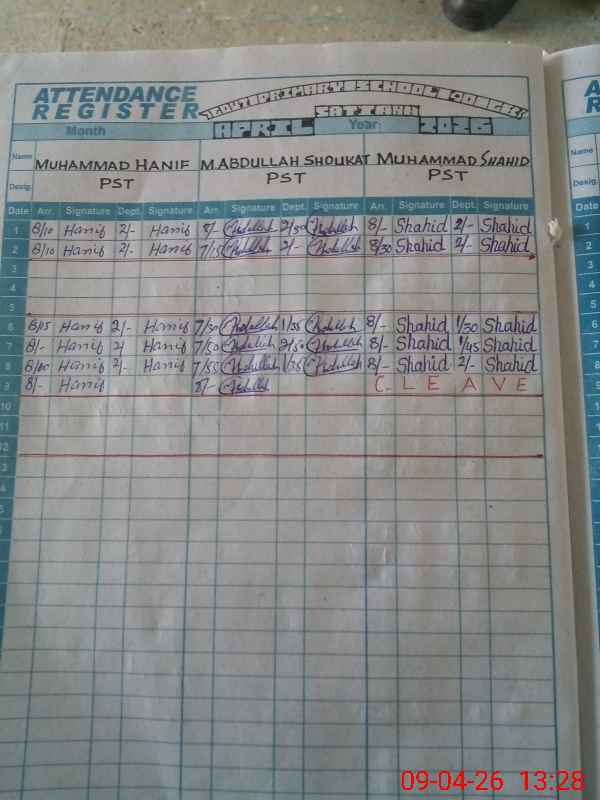 ATTENDANCE
REGISTER
GOVT: PRIMARY SCHOOL
Month APRIL Year 2026
Name MUHAMMAD HANIF M.ABDULLAH SHOUKAT MUHAMMAD SHAHID
Desig. PST PST PST
Date Arr. Signature Dept. Signature Arr. Signature Dept. Signature Arr. Signature Dept. Signature
1 8/10 Hanif 2/- Hanif 8/- Abdullah Abdullah 8/- Shahid 2/- Shahid
2 8/10 Hanif 2/- Hanif 7/15 Abdullah 2/- Abdullah 8/30 Shahid 2/- Shahid
3
4
5
6 8/15 Hanif 2/- Hanif 7/50 Abdullah 1/35 Abdullah 8/- Shahid 1/30 Shahid
7 8/- Hanif Hanif 7/50 Abdullah Abdullah 8/- Shahid 1/45 Shahid
8 Hanif 2/- Hanif 7/55 Abdullah Abdullah 8/- Shahid 2/- Shahid
9 8/- Hanif 8/- Abdullah C. LEAVE
10
11
12
09-04-26 13:28